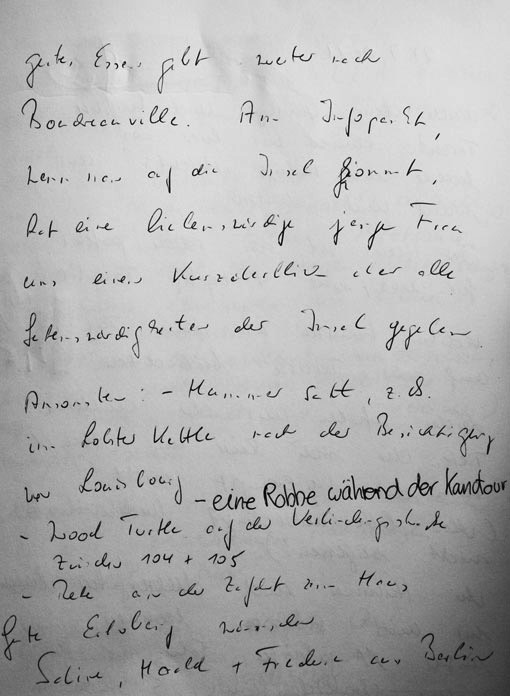 gutes Essen gibt weiter nach
Boudreauville. Am Infopunkt,
wenn man auf die Insel kommt,
hat eine liebenswürdige junge Frau
uns einen Kurzüberblick über alle
Sehenswürdigkeiten der Insel gegeben.
Ansonsten: - Hummer satt, z.B.
im Lobster Kettle nach der Besichtigung
von Louisbourg - eine Robbe während der Kanutour
- Wood Turtle auf der Verbindungsstraße
zwischen 104 + 105
- Rehe an der Zufahrt zum Haus
Gute Erholung wünschen
Sabine, Harald + Frederic aus Berlin